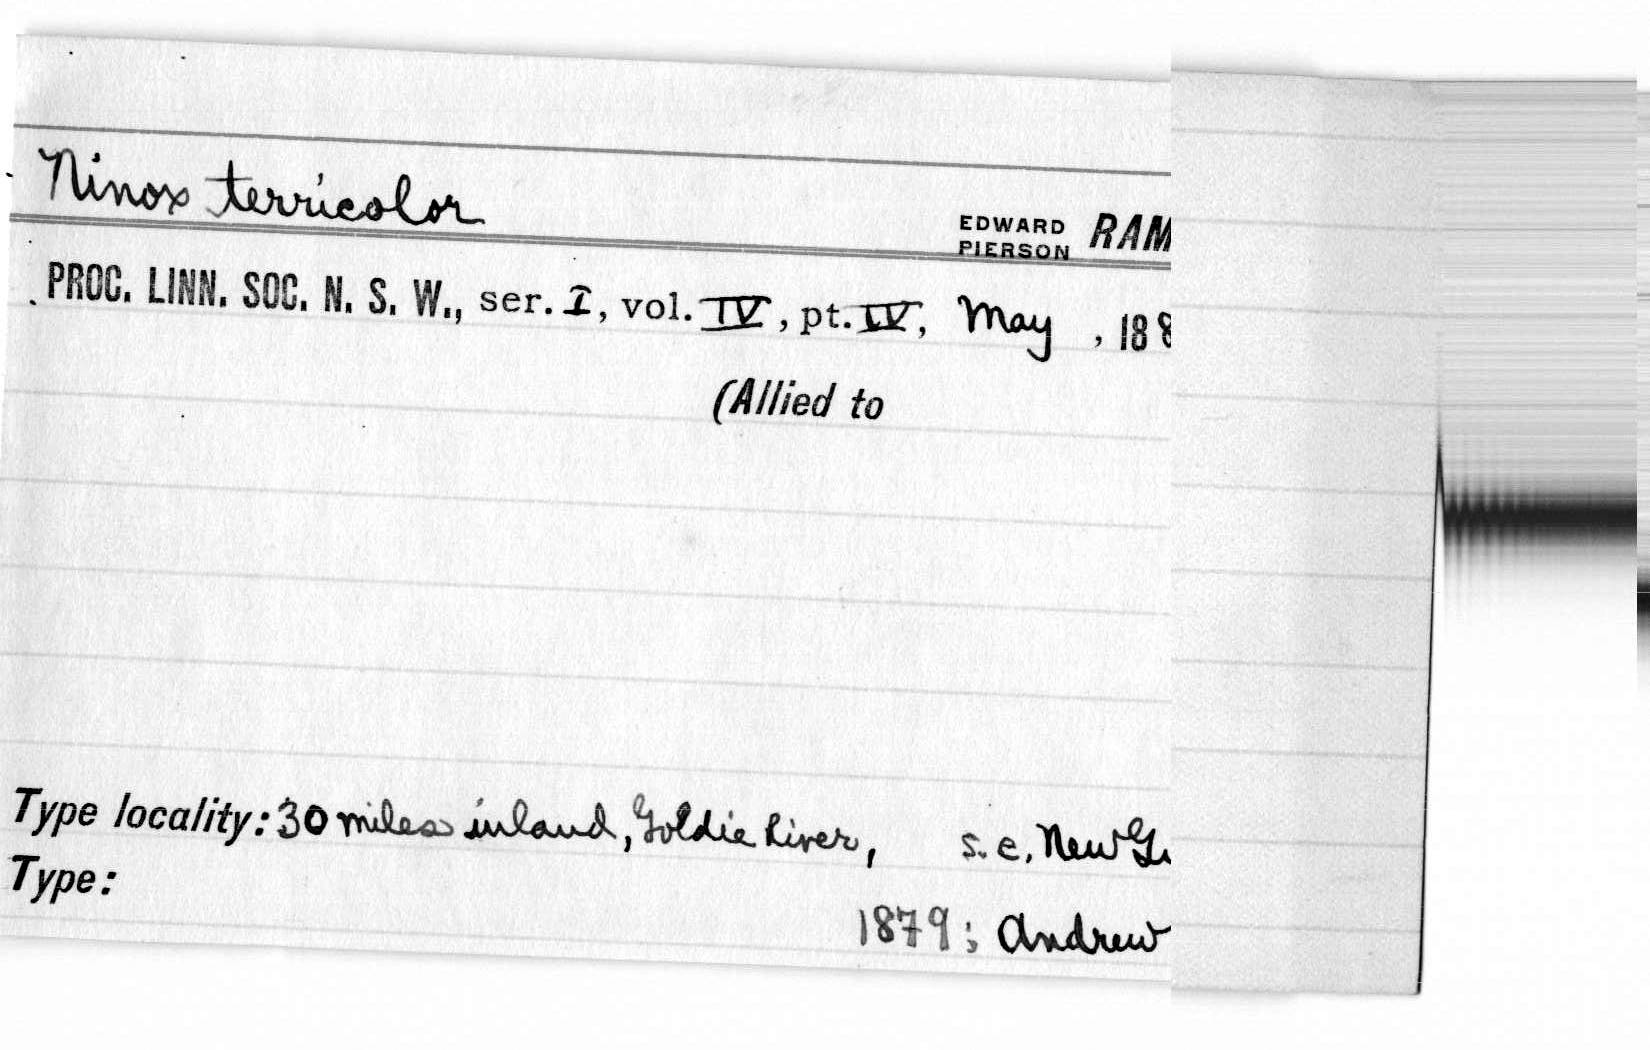 Ninox terricolor
EDWARD PIERSON RAM
PROC. LINN. SOC. N. S. W., ser. I, vol. IV, pt. IV, May , 188
(Allied to
Type locality: 30 miles inland, Goldie River, s. e. New Gu
Type:
1879; Andrew